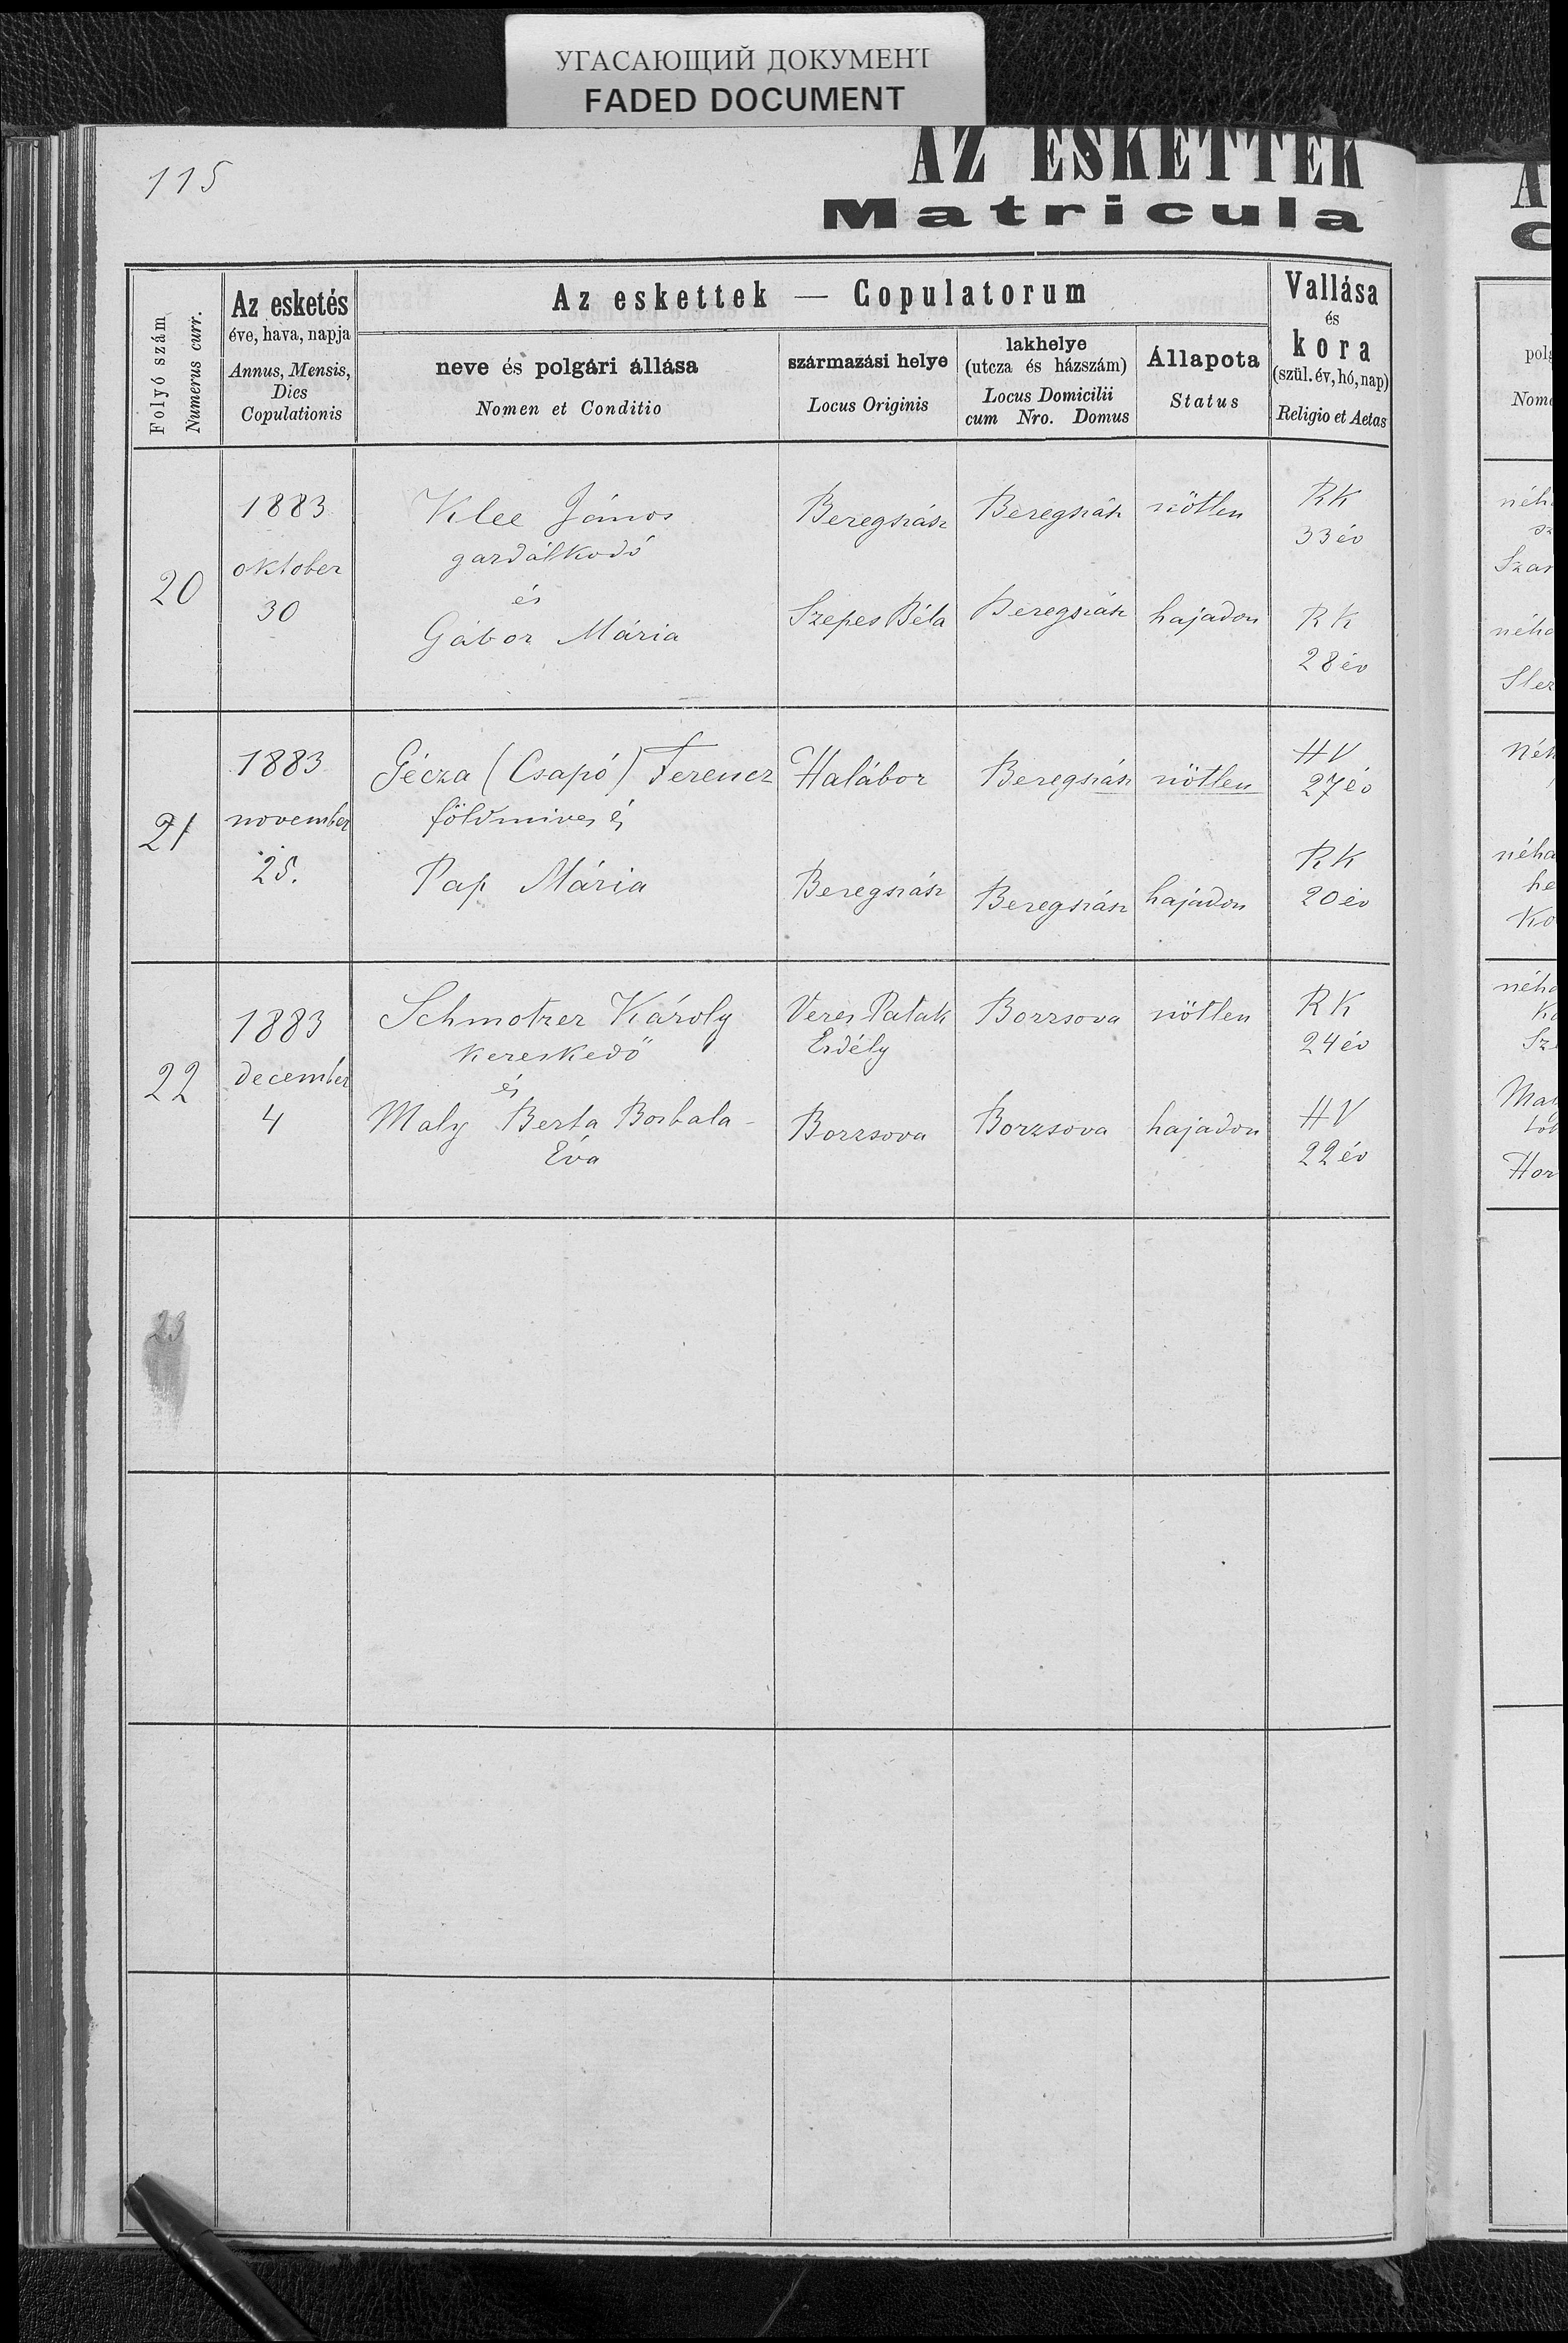 УГАСАЮЩИЙ ДОКУМЕНТ
FADED DOCUMENT
115
AZ ESKETTEK
Matricula
Folyó szám
Numerus curr.
Az esketés
éve, hava, napja
Annus, Mensis,
Dies
Copulationis
Az eskettek — Copulatorum
neve és polgári állása
Nomen et Conditio
származási helye
Locus Originis
lakhelye
(utcza és házszám)
Locus Domicilii
cum Nro. Domus
Állapota
Status
Vallása
és
kora
(szül. év, hó, nap)
Religio et Aetas
20
1883
oktober
30
Klee János
gazdálkodó
és
Gábor Mária
Beregszász
Szepes Béla
Beregszász
Beregszász
nötlen
hajadon
RK
33 év
RK
28 év
21
1883
november
25.
Gécza (Csapó) Ferencz
földmives és
Pap Mária
Halábor
Beregszász
Beregszász
Beregszász
nötlen
hajadon
HV
27 év
RK
20 év
22
1883
december
4
Schmotzer Károly
kereskedö
és
Maly Berta Borbala-
Éva
Veres Patak
Erdély
Borzsova
Borzsova
Borzsova
nötlen
hajadon
RK
24 év
HV
22 év
23